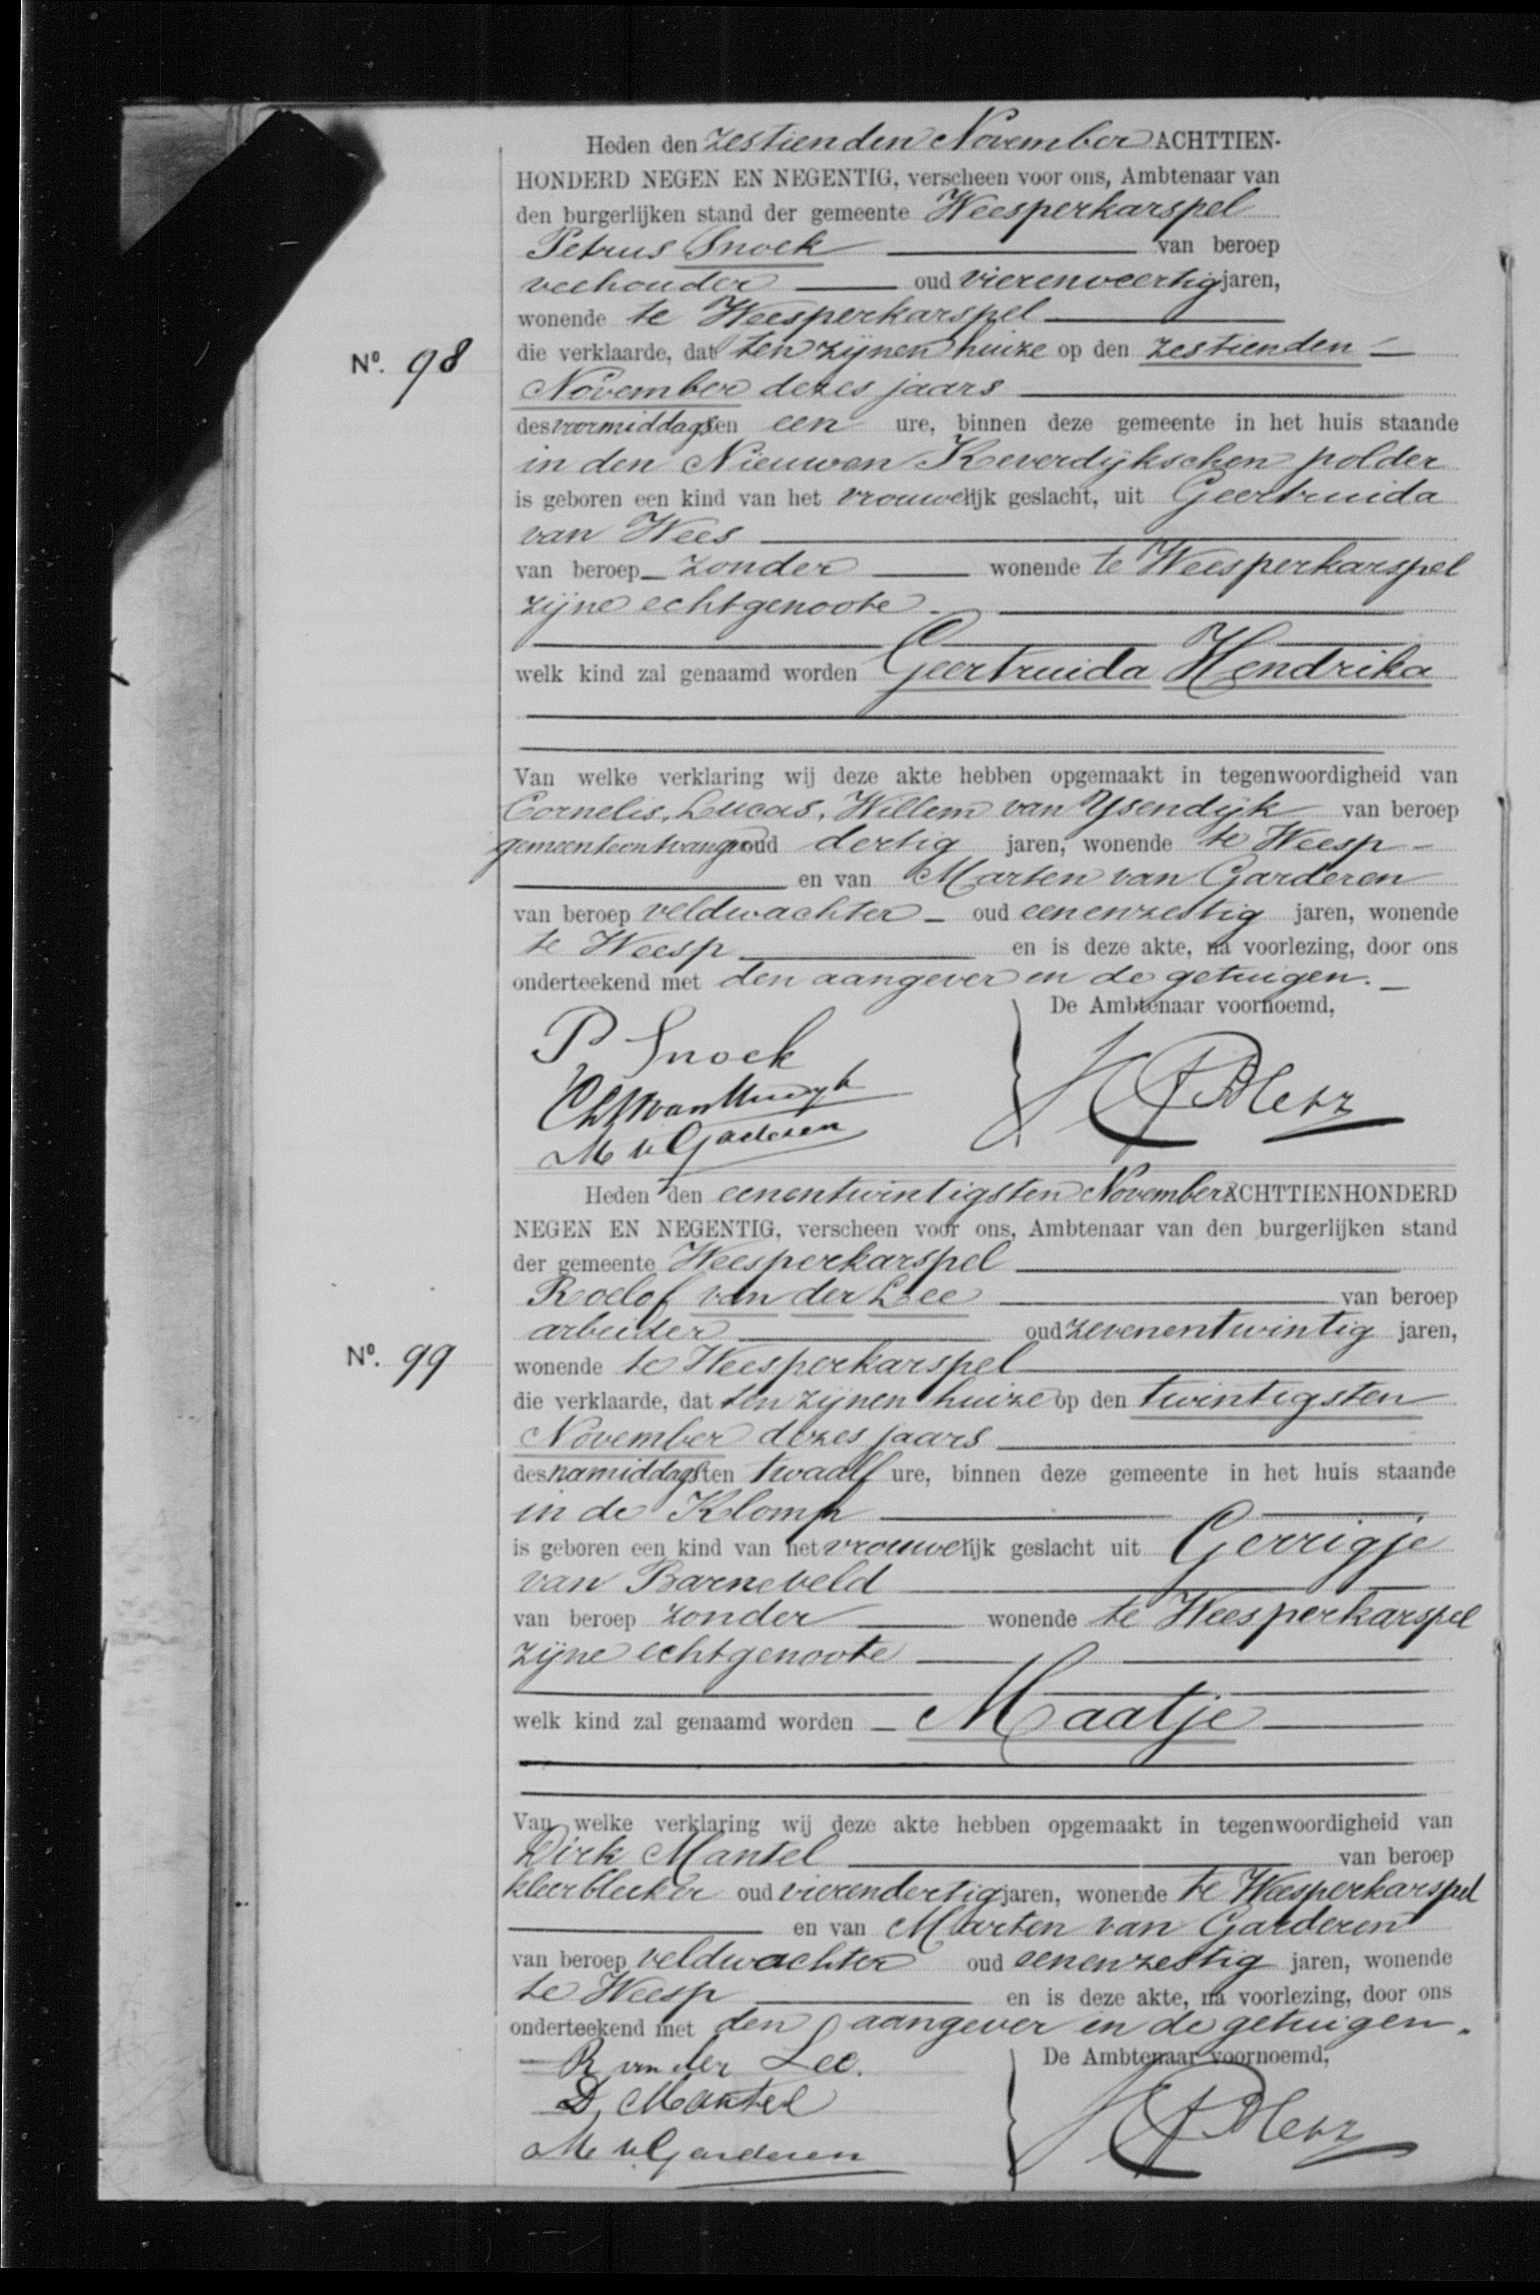 Heden den zestienden November ACHTTIEN-
HONDERD NEGEN EN NEGENTIG, verscheen voor ons, Ambtenaar van
den burgerlijken stand der gemeente Weesperkarspel
Petrus Snoek van beroep
veehouder oud vierenveertig jaren,
wonende te Weesperkarspel
Nº. 98
die verklaarde, dat ten zijnen huize op den zestienden
November dezes jaars
des voormiddags ten een ure, binnen deze gemeente in het huis staande
in den Nieuwen Keverdijkschen polder
is geboren een kind van het vrouwelijk geslacht, uit Geertruida
van Wees
van beroep zonder wonende te Weesperkarspel
zijne echtgenoote
welk kind zal genaamd worden Geertruida Hendrika
Van welke verklaring wij deze akte hebben opgemaakt in tegenwoordigheid van
Cornelis, Lucas, Willem van Ysendijk van beroep
gemeenteontvanger oud dertig jaren, wonende te Weesp
en van Marten van Garderen
van beroep veldwachter oud eenenzestig jaren, wonende
te Weesp en is deze akte, na voorlezing, door ons
onderteekend met den aangever en de getuigen.
De Ambtenaar voornoemd,
P Snoek
M v Garderen
Heden den eenentwintigsten November ACHTTIENHONDERD
NEGEN EN NEGENTIG, verscheen voor ons, Ambtenaar van den burgerlijken stand
der gemeente Weesperkarspel
Roelof van der Lee van beroep
arbeider oud zevenentwintig jaren,
Nº. 99
wonende te Weesperkarspel
die verklaarde, dat ten zijnen huize op den twintigsten
November dezes jaars
des namiddags ten twaalf ure, binnen deze gemeente in het huis staande
in de Klomp
is geboren een kind van het vrouwelijk geslacht uit Gerrigje
van Barneveld
van beroep zonder wonende te Weesperkarspel
zijne echtgenoote
welk kind zal genaamd worden Maatje
Van welke verklaring wij deze akte hebben opgemaakt in tegenwoordigheid van
Dirk Mantel van beroep
kleerbleeker oud vierendertig jaren, wonende te Weesperkarspel
en van Marten van Garderen
van beroep veldwachter oud eenenzestig jaren, wonende
te Weesp en is deze akte, na voorlezing, door ons
onderteekend met den aangever en de getuigen.
De Ambtenaar voornoemd,
R van der Lee.
D, Mantel
M v Garderen